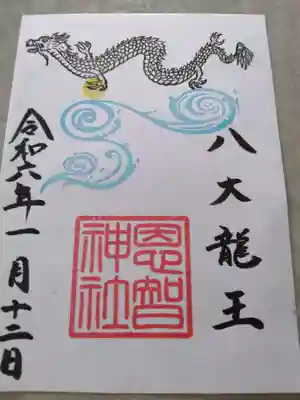 八大龍王
恩智
神社
令和六年一月十二日